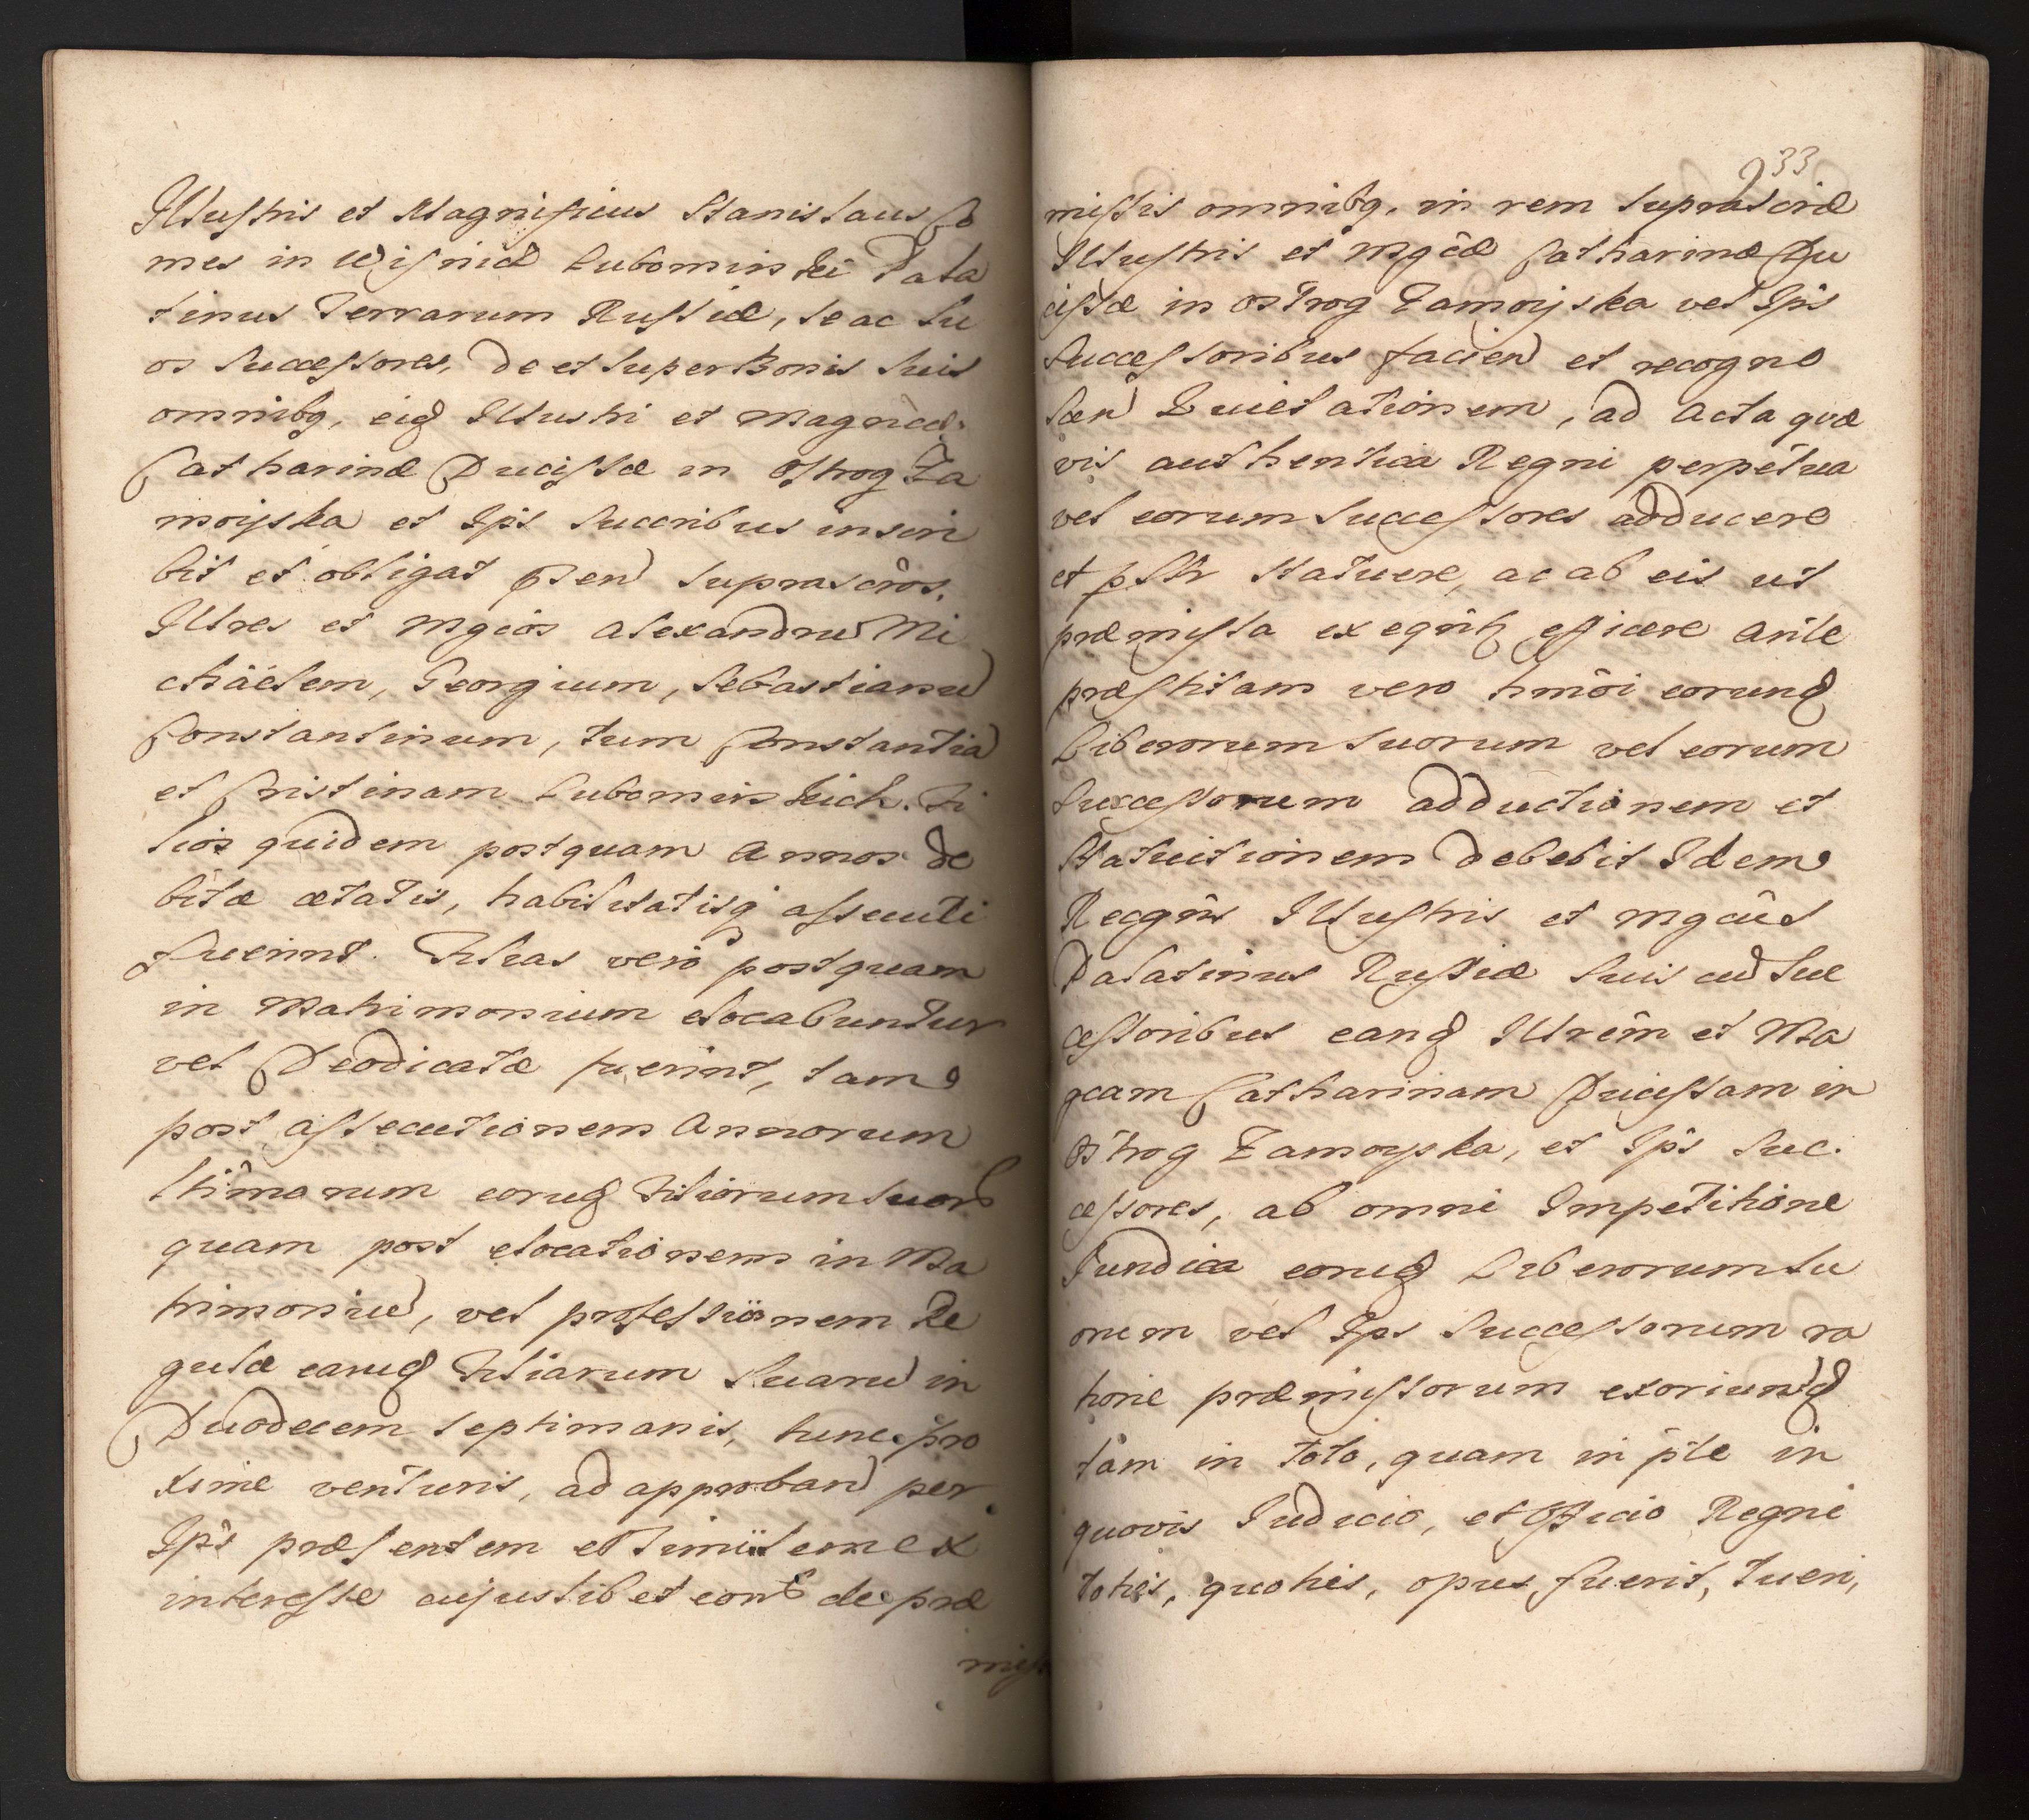 Illustris et Magnificus Stanislaus Co
mes in Wisnicz Lubomirski Pala
tinus Terrarum Russiæ, se ac Su
os Successores, de et super Bonis suis
omnibq, eid Illustri et Magncæ
Catharinæ Ducissæ in Ostrog Za
moyska et Ips Succribus inscri
bit et obligat psen suprascros,
Illres et Mgcos Alexandru Mi
chäelem, Georgium, Sebastianu
Constantinum, tum Constantia
et Cristinam Lubomirskich. Fi
lios quidem postquam Annos de
bitæ ætatis, habilitatisq assecuti
fuerint. Filias vero postquam
in Matrimonium elocabuntur
vel Deodicatæ fuerint, tam
post assecutionem Annorum
ltimorum eorud Filiorum suor
quam post elocationem in Ma
trimoniu, vel professionem Re
gulæ earud Filiarum Suaru in
Duodecem septimanis, tunc pro
xime venturis, ad approband per
Ips præsentem et
interesse cujuslibet eor de præ
miss
33
missis omnibq, in rem suprascriæ
Illustris et Mgcæ Catharinæ Du
cissæ in Ostrog Zamoyska vel Ips
Successoribus faciend et recogno
scen Quietationem, ad Acta quæ
vis authentica Regni perpetua
vel eorum Successores adducere
et pstr statuere, ac ab eis ut
præmissa exeqntz efficere Ante
præstitam vero hmoi eorund
Liberorum suorum vel eorum
Successorum adductionem et
Statuitionem debebit Idem
Recgns Illustris et Mgcus
Palatinus Russiæ Suis cu Suc
cessoribus eand Illrem et Ma
gcam Catharinam Ducissam in
Ostrog Zamoyska, et Ips Suc.
cessores, ab omni Impetitione
Juridica eorud Liberorum su
orum vel Ips Successorum ra
tione præmissorum exoriund
tam in toto, quam in pte in
quovis Judicio, et Officio Regni
toties, quoties, opus fuerit, tueri,